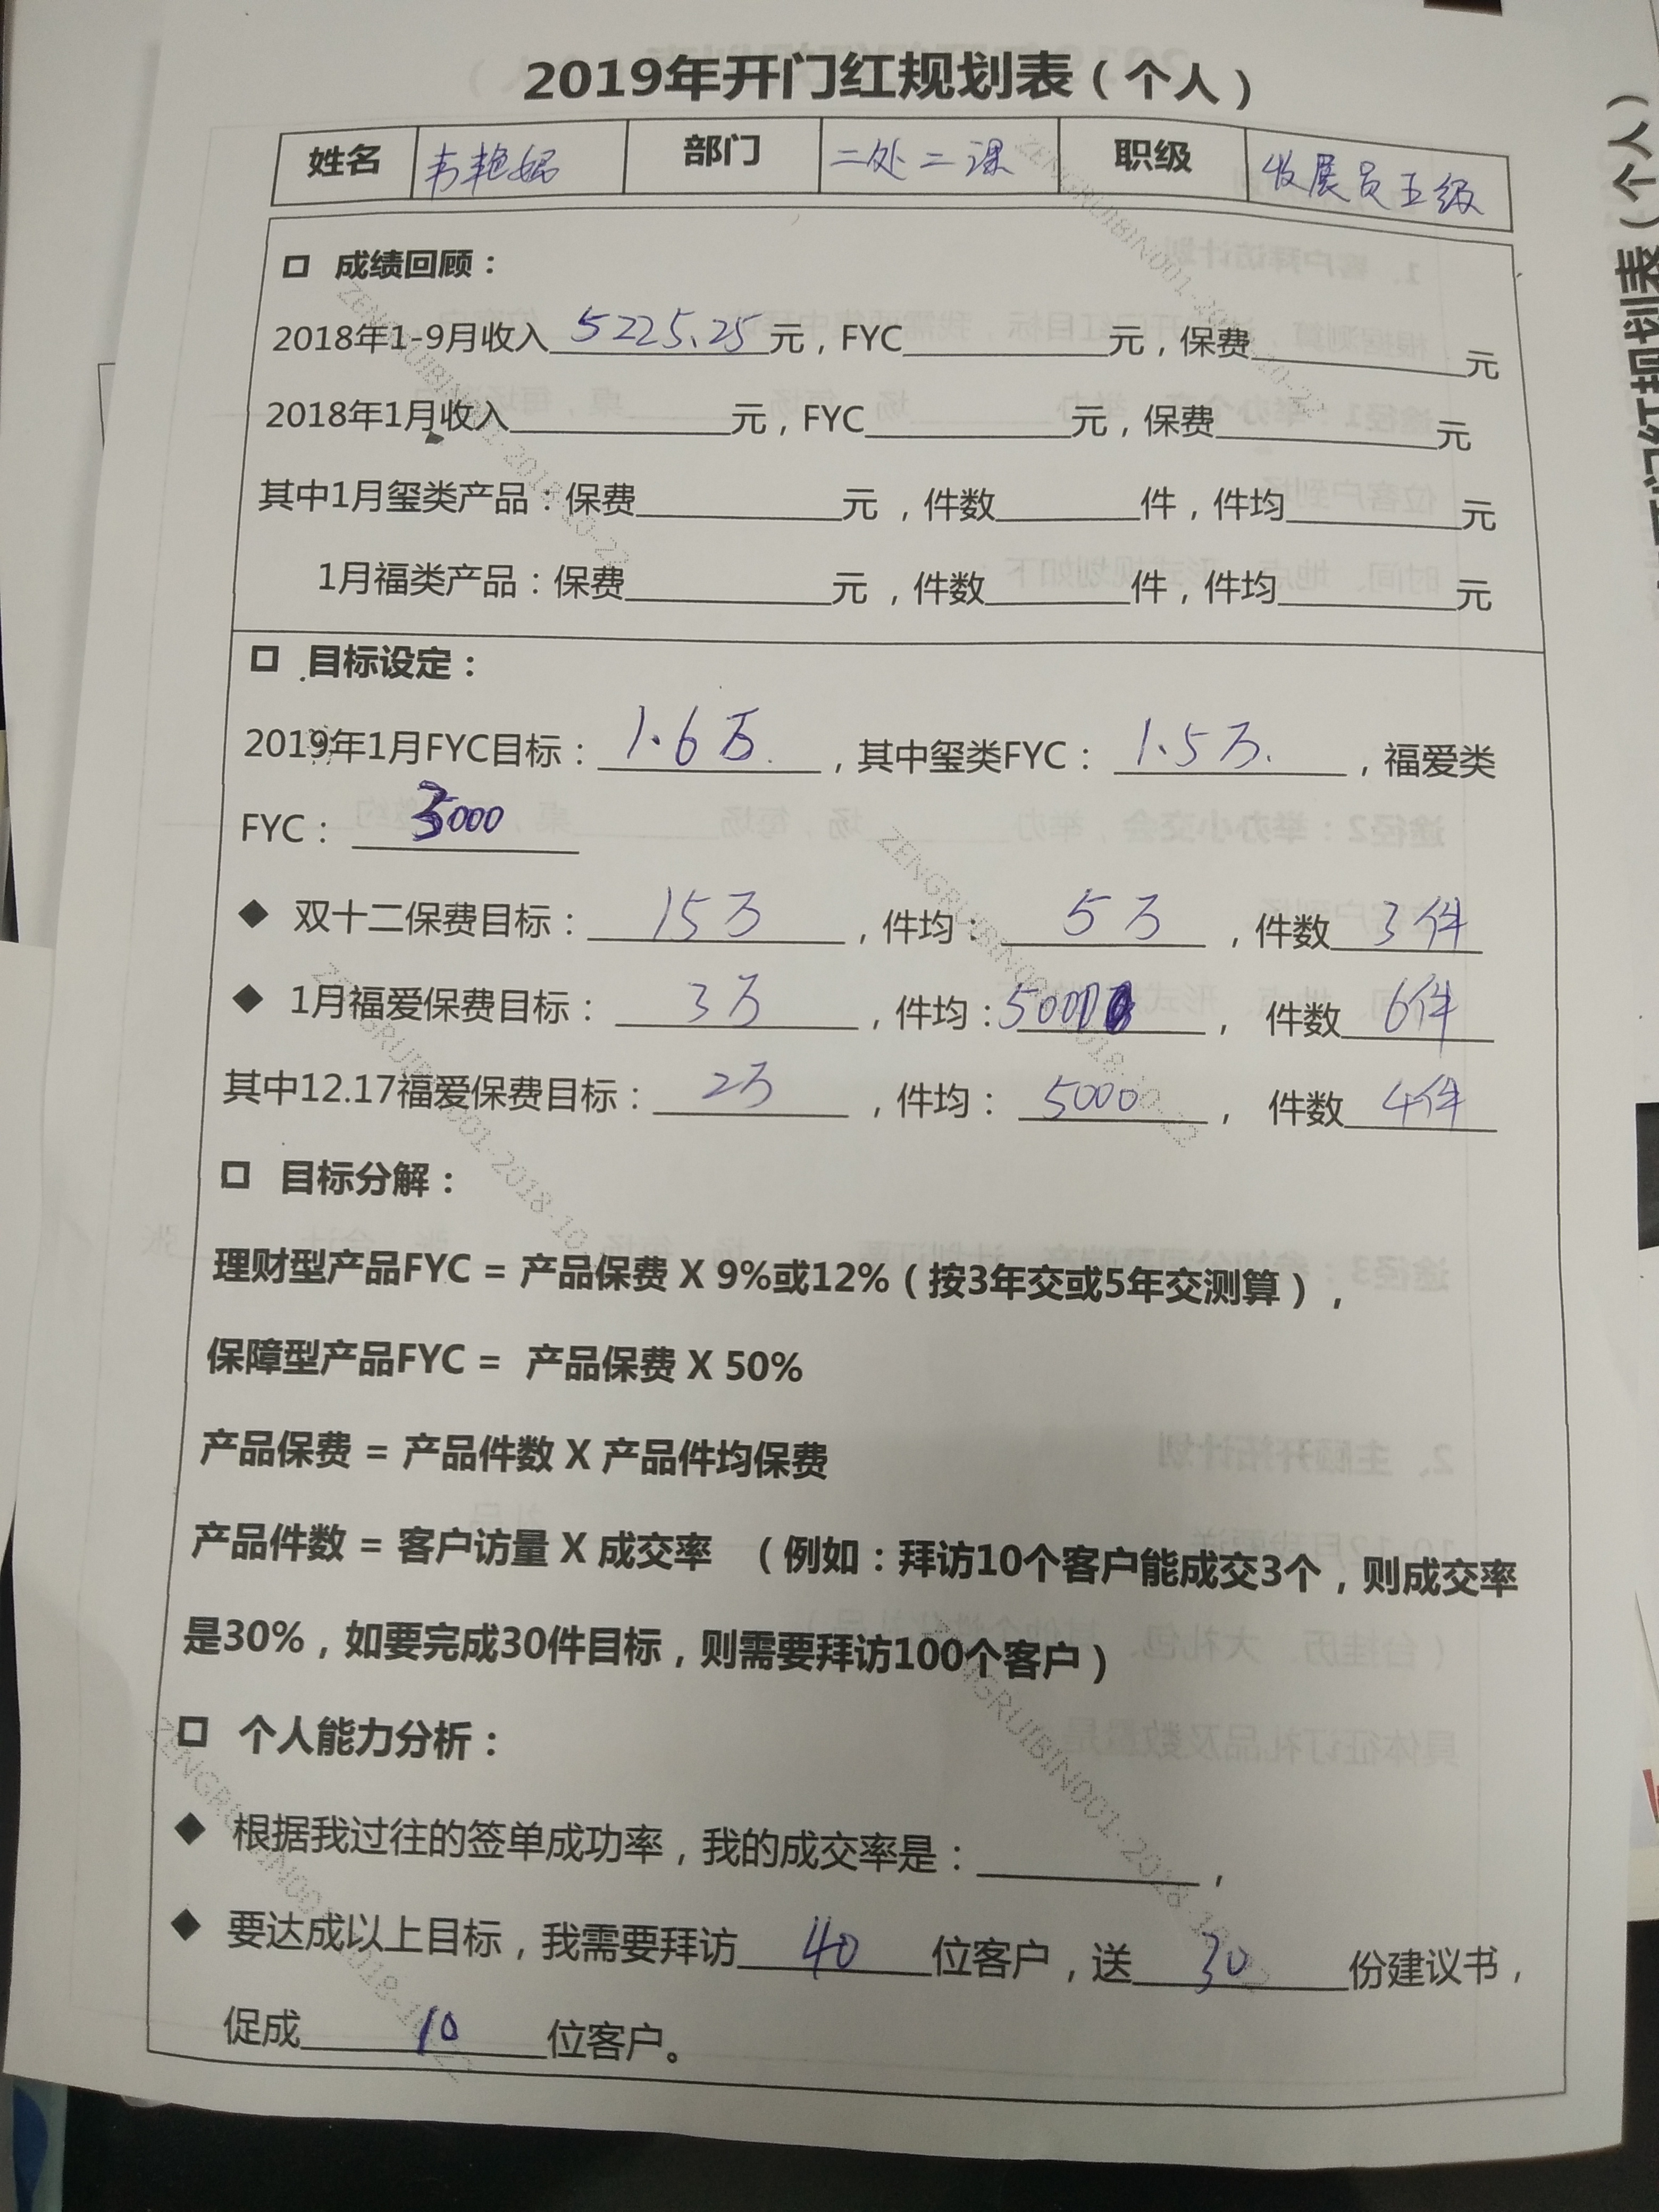 2019年开门红规划表（个人）
姓名 韦艳娟 部门 二处二课 职级 收展员五级
口 成绩回顾：
2018年1-9月收入 5225.25 元，FYC 元，保费 元
2018年1月收入 元，FYC 元，保费 元
其中1月玺类产品：保费 元，件数 件，件均 元
1月福类产品：保费 元，件数 件，件均 元
口 目标设定：
2019年1月FYC目标：1.6万，其中玺类FYC：1.5万，福爱类
FYC：3000
◆ 双十二保费目标：15万，件均：5万，件数 3件
◆ 1月福爱保费目标：3万，件均：5000，件数 6件
其中12.17福爱保费目标：2万，件均：5000，件数 4件
口 目标分解：
理财型产品FYC = 产品保费 X 9%或12%（按3年交或5年交测算），
保障型产品FYC = 产品保费 X 50%
产品保费 = 产品件数 X 产品件均保费
产品件数 = 客户访量 X 成交率 （例如：拜访10个客户能成交3个，则成交率
是30%，如要完成30件目标，则需要拜访100个客户）
口 个人能力分析：
◆ 根据我过往的签单成功率，我的成交率是： ，
◆ 要达成以上目标，我需要拜访 40 位客户，送 30 份建议书，
促成 10 位客户。
ZENGRUIBIN001-2018-10-22